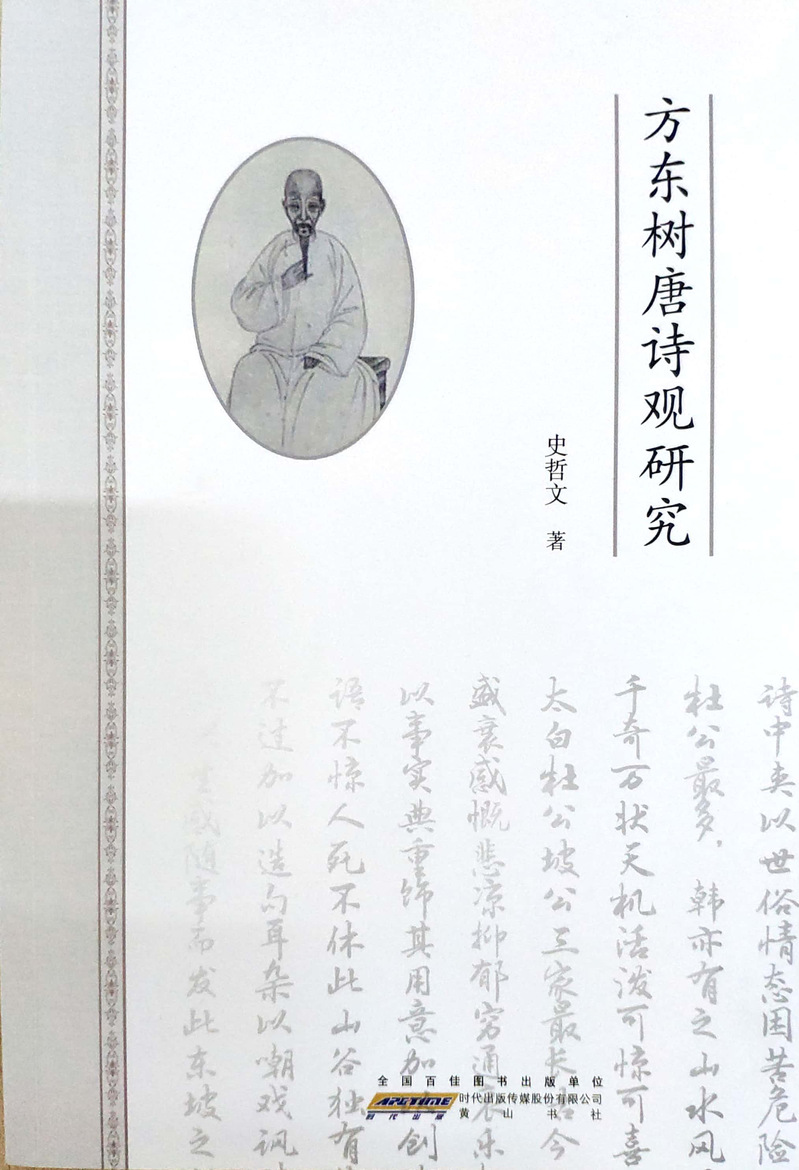 方东树唐诗观研究
史哲文 著
诗中夹以世俗情态困苦危险
杜公最多，韩亦有之山水风
千奇万状天机活泼可惊可喜
太白杜公坡公三家最长古今
盛衰感慨悲凉抑郁穷通哀乐
以事实典重饰其用意加以创
语不惊人死不休此山谷独有
不过加以造句耳杂以嘲戏讽
生感随事而发此东坡之
全国百佳图书出版单位
ARCTIME 时代出版传媒股份有限公司
时代出版 黄山书社